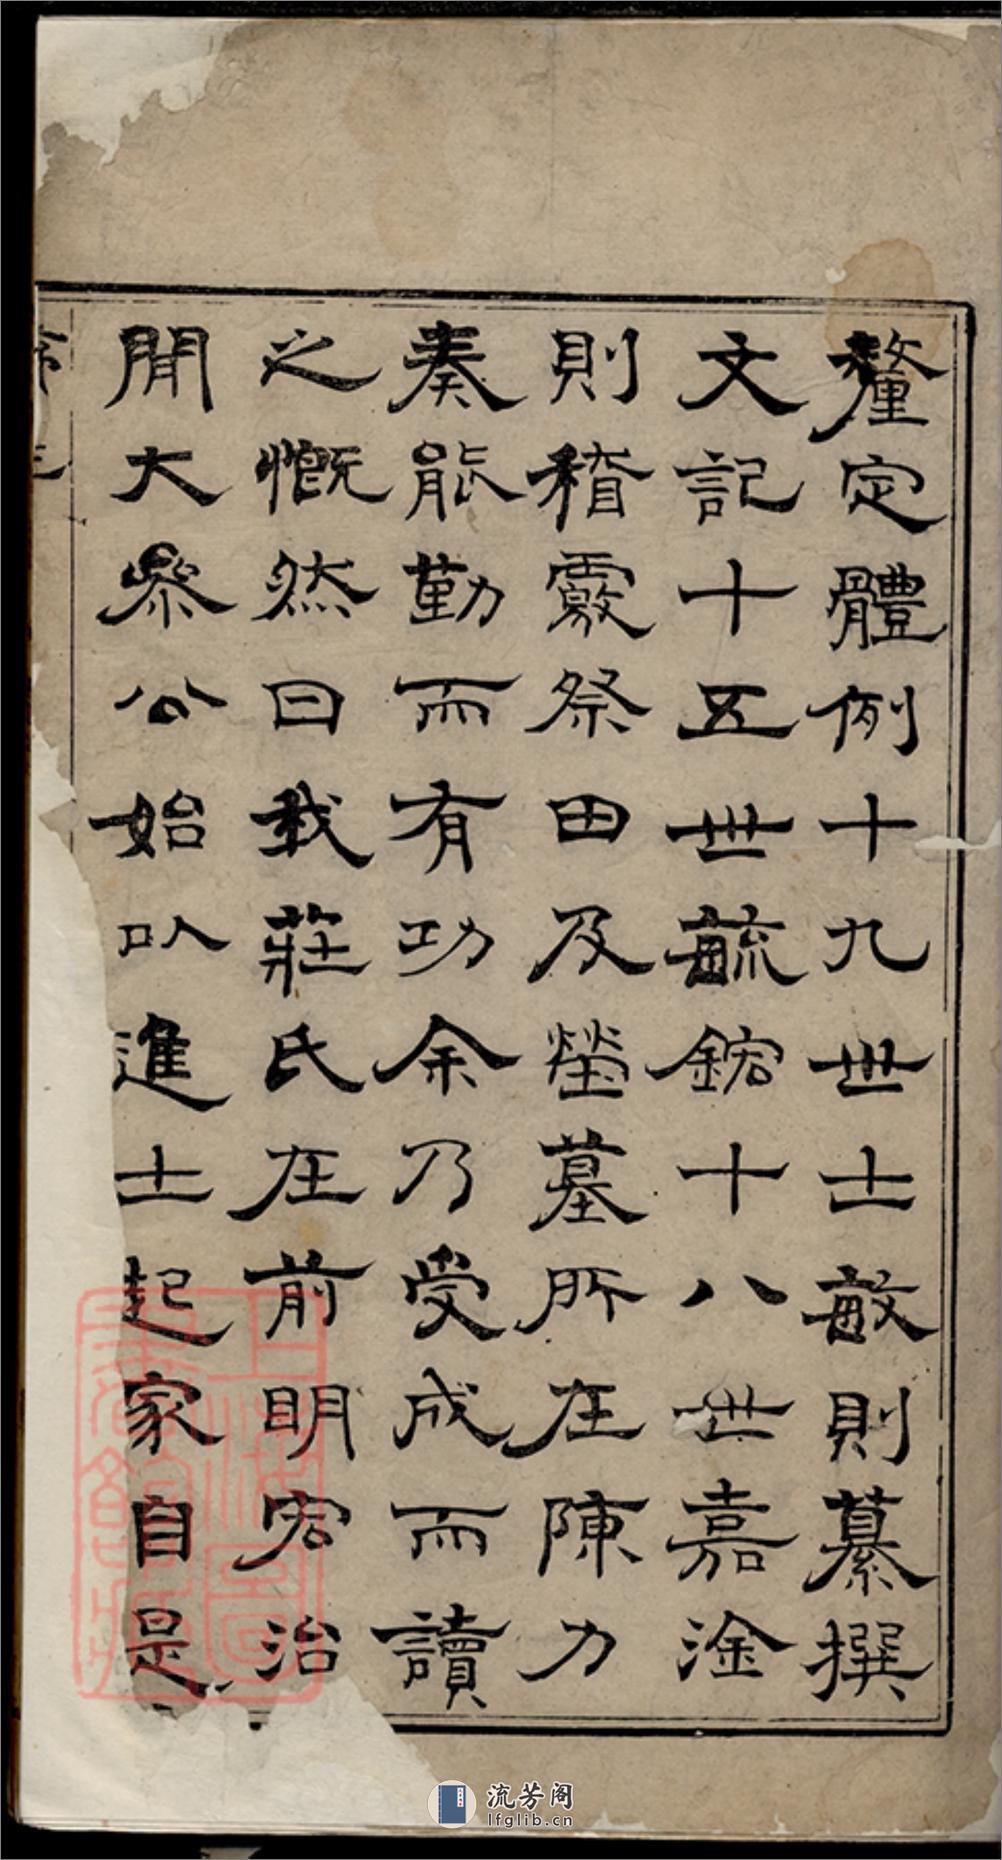 釐定體例十九世士敏則纂撰
文記十五世毓鋐十八世嘉淦
則稽覈祭田及塋墓所在陳力
奏能勤而有功余乃受成而讀
之慨然曰我莊氏在前明宏治
間大參公始以進士起家自是
上海圖書館藏
流芳阁
lfglib.cn